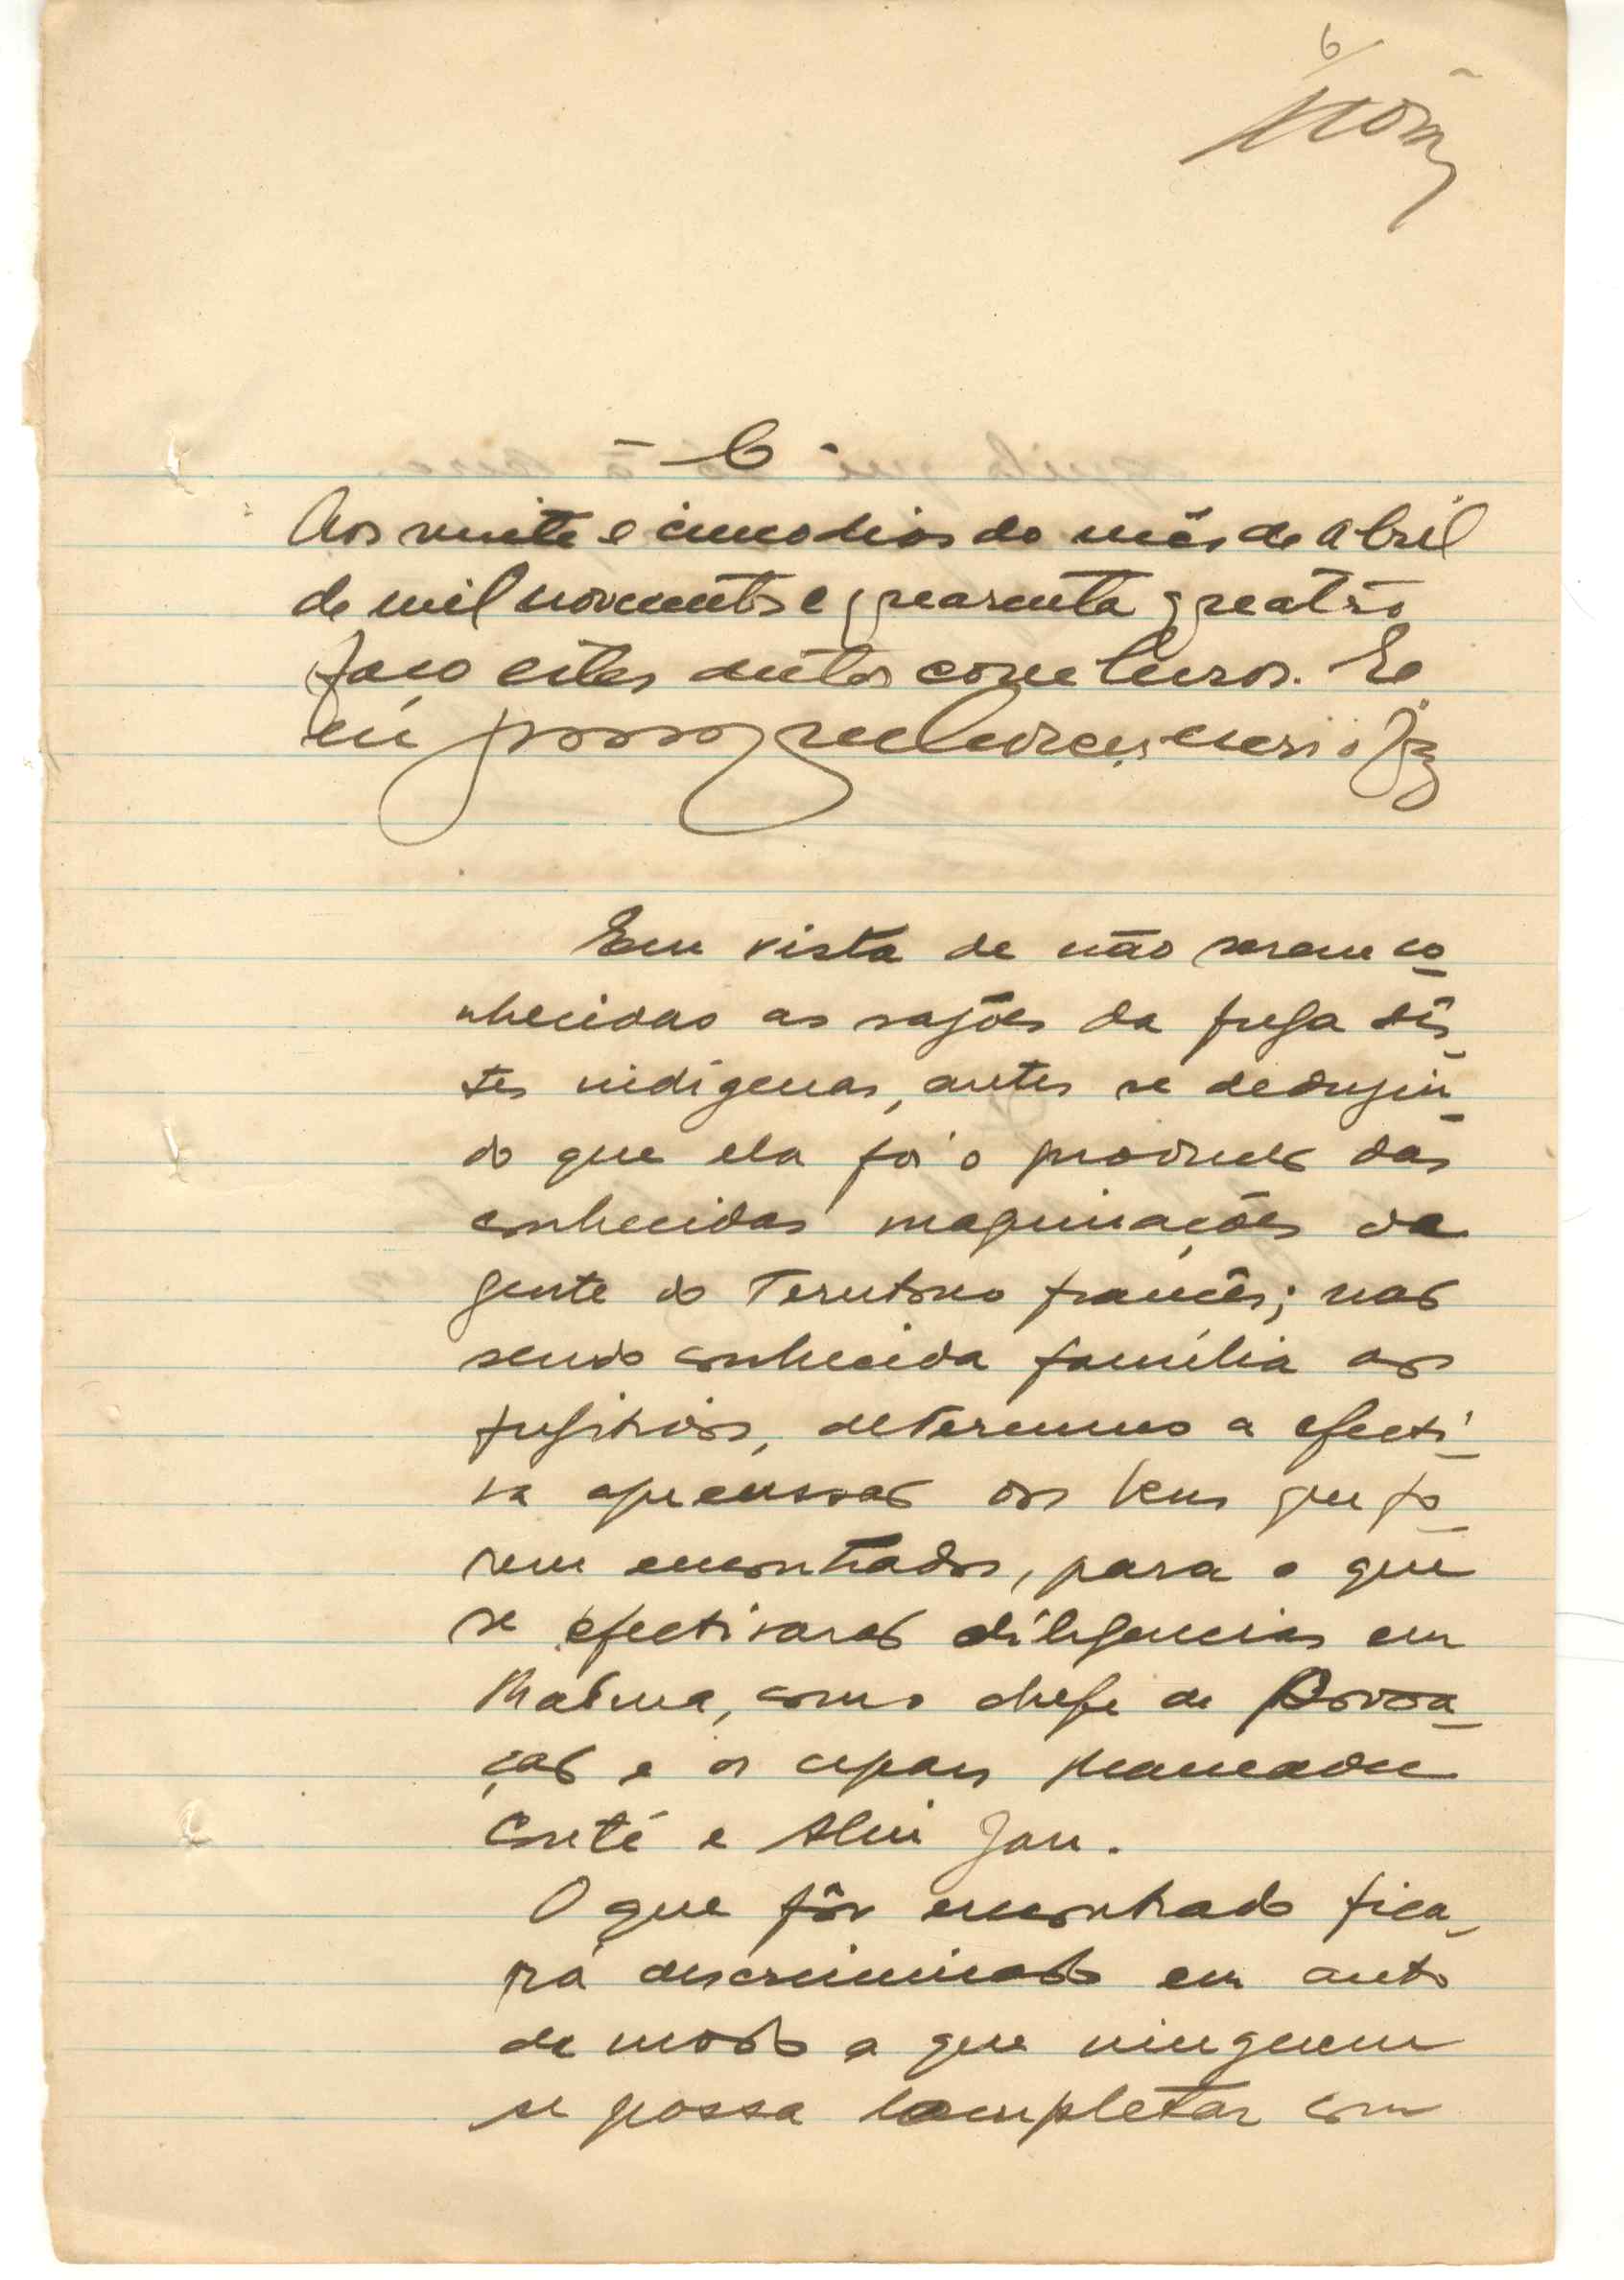 6
- C -
Aos vinte e cinco dias do mês de Abril
de mil novecentos e quarenta quatro
faço estes autos conclusos. E
eu
Em vista de não serem co-
nhecidas as rasões da fuga dês-
tes indígenas, antes se deduzin-
do que ela foi o producto das
conhecidas maquinações da
gente do Território francês; não
sendo conhecida família aos
fugitivos, determino a efecti-
va apreensão dos bens que fo-
rem encontrados, para o que
se efectivarão diligencias em
como chefe de Povoa-
ção e os cipais
Conté e
O que fôr encontrado fica-
rá discriminado em auto
de modo a que ninguem
se possa locupletar com